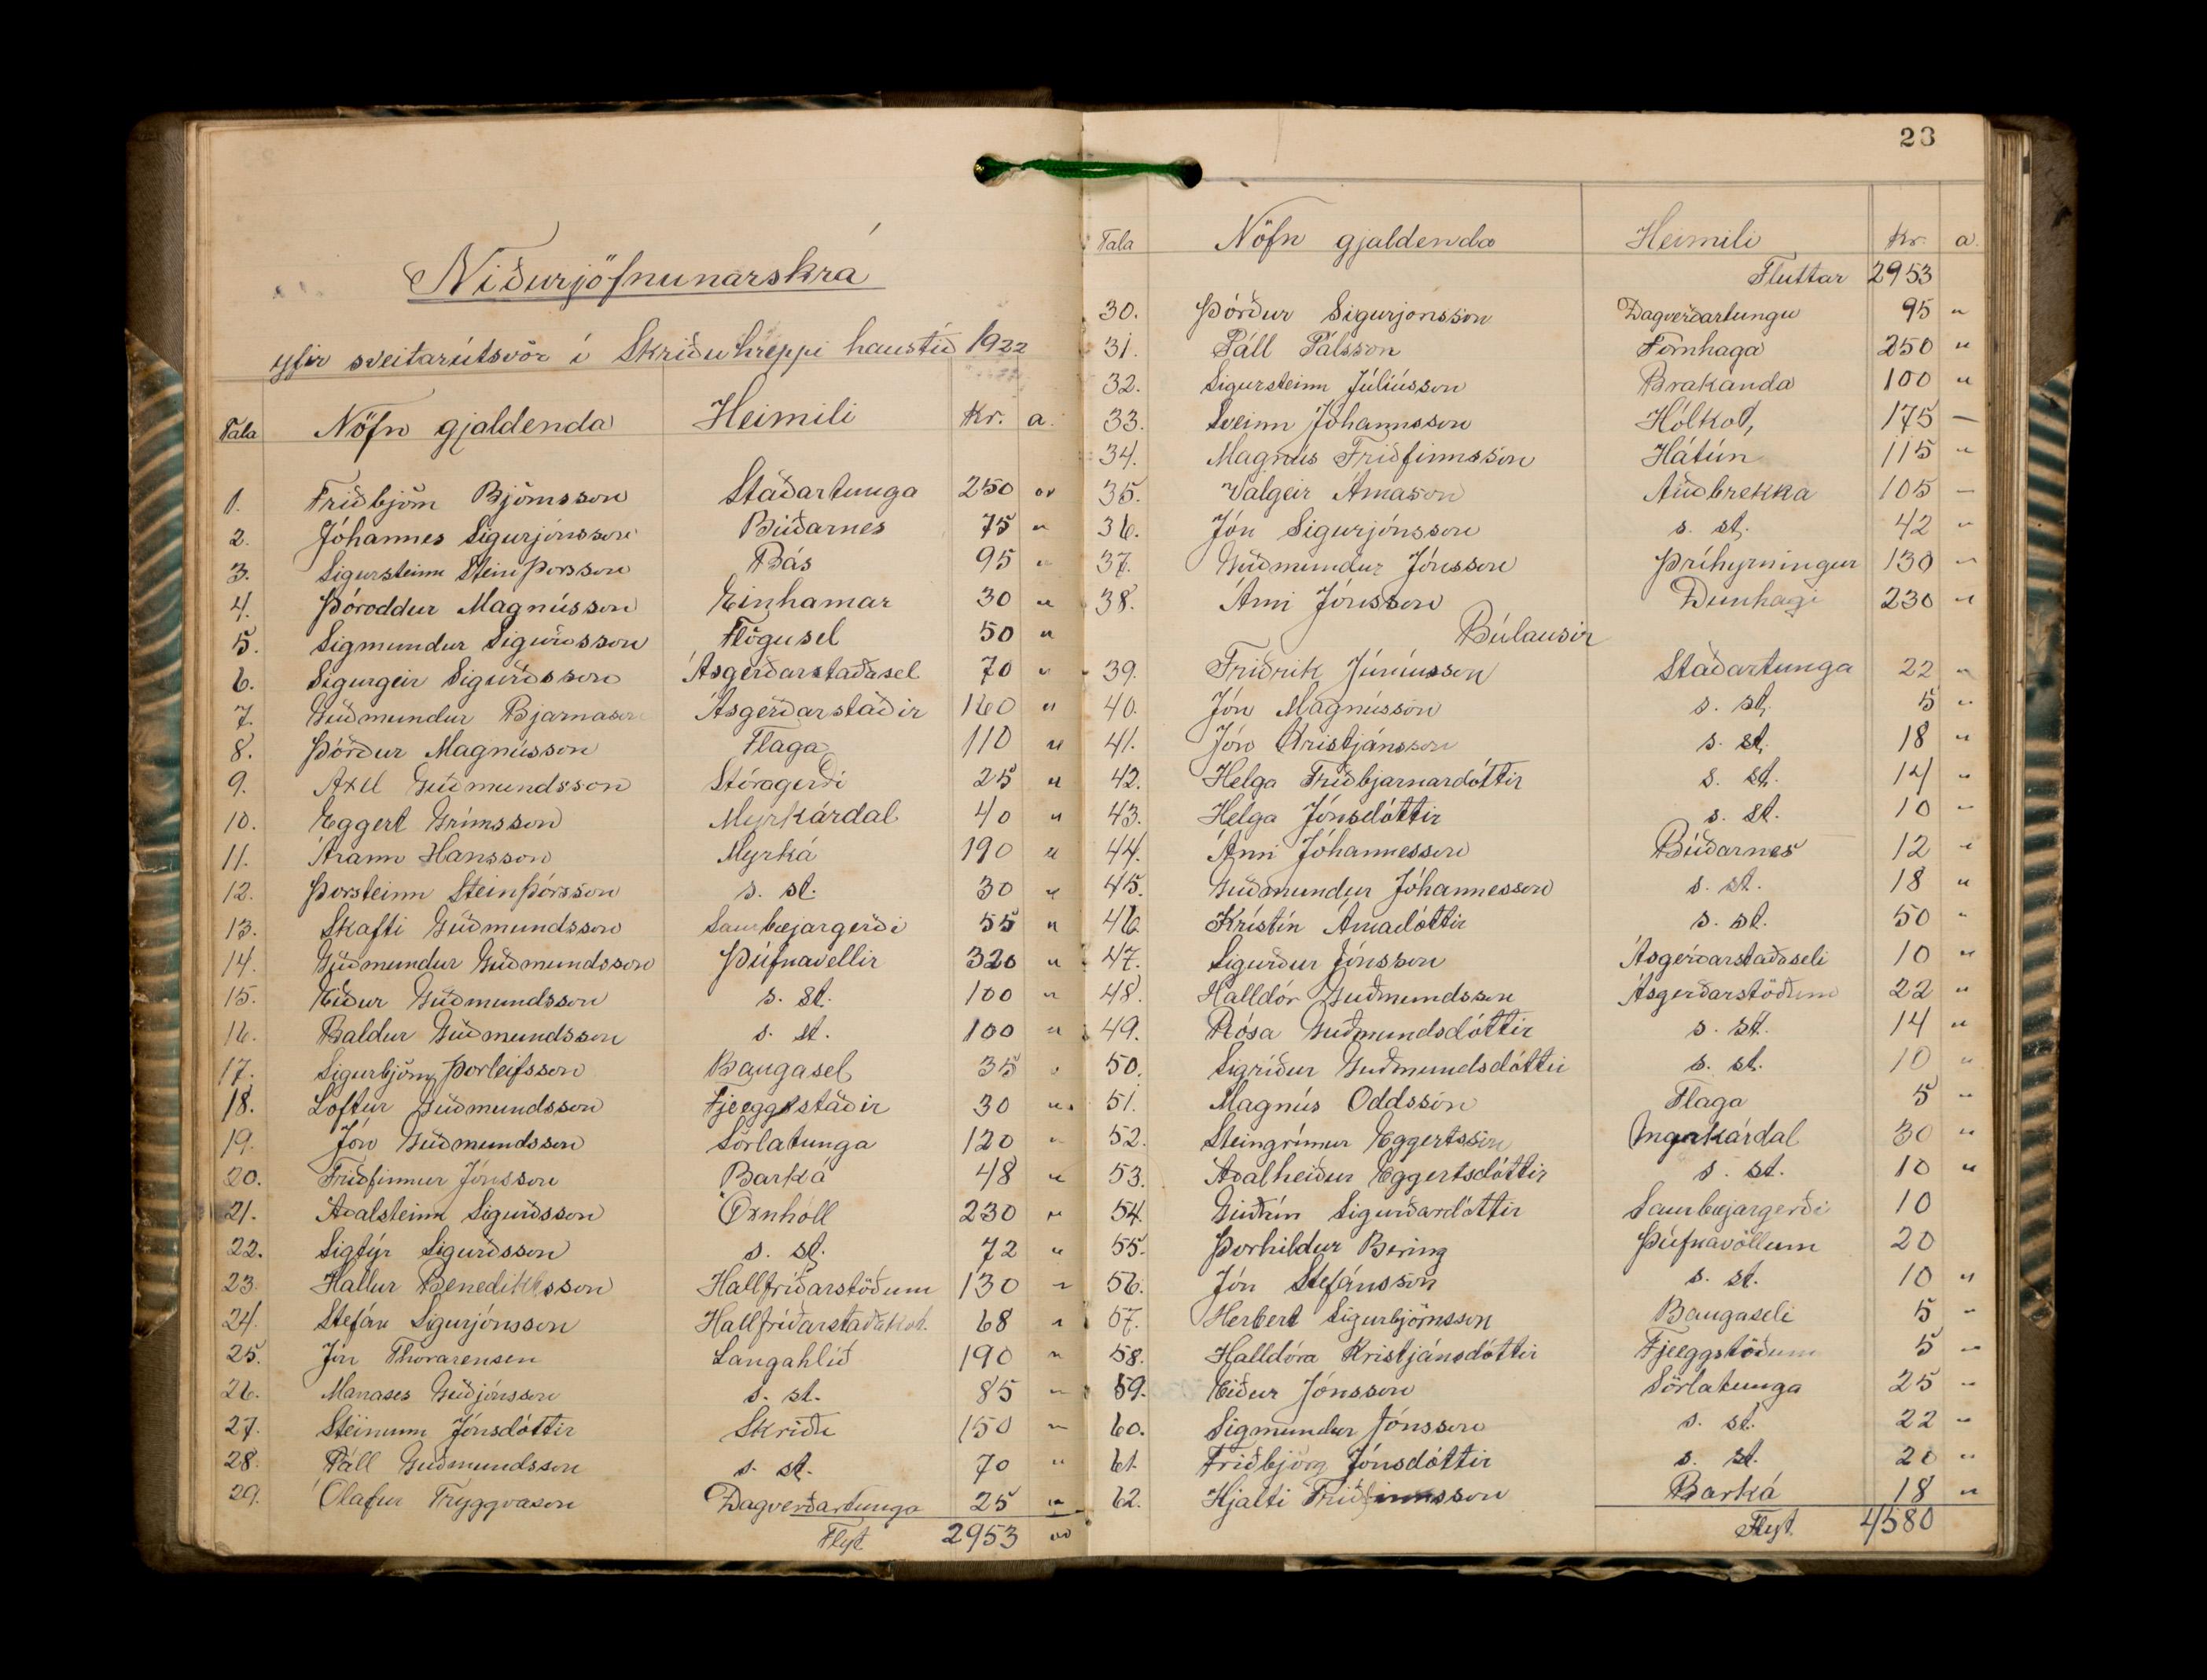 Niðurjöfnunarskrá
yfir sveitarútsvör í Skriðuhreppi haustið 1922
Tala Nöfn gjaldenda Heimili Kr. a.
1. Friðbjörn Björnsson Staðartunga 250 00
2. Jóhannes Sigurjónsson Búðarnes 75 "
3. Sigursteinn Steinþorsson Bás 95 "
4. Þóroddur Magnússon Einhamar 30 "
5. Sigmundur Sigurðsson Flögusel 50 "
6. Sigurgeir Sigurðsson Ásgerðarstaðasel 70 "
7. Guðmundur Bjarnason Ásgerðarstaðir 160 "
8. Þórður Magnússon Flaga 110 "
9. Axel Guðmundsson Stóragerði 25 "
10. Eggert Grímsson Myrkárdal 40 "
11. Árann Hansson Myrká 190 "
12. Þorsteinn Steinþórsson s. st. 30 "
13. Skafti Guðmundsson Saurbæjargerði 55 "
14. Guðmundur Guðmundsson Þúfnavellir 320 "
15. Eiður Guðmundsson s. st. 100 "
16. Baldur Guðmundsson s. st. 100 "
17. Sigurbjörn Þorleifsson Baugasel 35 "
18. Loftur Guðmundsson Fjeeggstaðir 30 "
19. Jón Guðmundsson Sörlatunga 120 "
20. Friðfinnur Jónsson Barká 48 "
21. Aðalsteinn Sigurðsson Öxnhóll 230 "
22. Sigtýr Sigurðsson s. st. 72 "
23. Hallur Benediktsson Hallfríðarstöðum 130 "
24. Stefán Sigurjónsson Hallfríðarstaðakot. 68 "
25. Jón Thorarensen Langahlíð 190 "
26. Manases Guðjónsson s. st. 85 "
27. Steinunn Jónsdóttir Skriðu 150 "
28. Páll Guðmundsson s. st. 70 "
29. Ólafur Tryggvason Dagverðartunga 25 "
Flyt 2953 00
23
Tala Nöfn gjaldenda Heimili Kr. a.
Fluttar 2953
30. Þórður Sigurjónsson Dagverðartungu 95 "
31. Páll Pálsson Fornhaga 250 "
32. Sigursteinn Júlíusson Brakanda 100 "
33. Sveinn Jóhannsson Hólkot, 175 —
34. Magnús Friðfinnsson Hátún 115 "
35. Valgeir Árnason Auðbrekka 105 —
36. Jón Sigurjónsson s. st. 42 "
37. Guðmundur Jónsson Þríhyrningur 130 "
38. Árni Jónsson Dunhagi 230 "
Búlausir
39. Friðrik Júníusson Staðartunga 22 "
40. Jón Magnússon s. st. 5 "
41. Jón Kristjánsson s. st. 18 "
42. Helga Friðbjarnardóttir s. st. 14 "
43. Helga Jónsdóttir s. st. 10 "
44. Árni Jóhannesson Búðarnes 12 "
45. Guðmundur Jóhannesson s. st. 18 "
46. Kristín Árnadóttir s. st. 50 "
47. Sigurður Jónsson Ásgerðarstaðaseli 10 "
48. Halldór Guðmundsson Ásgerðarstöðum 22 "
49. Rósa Guðmundsdóttir s. st. 14 "
50. Sigríður Guðmundsdóttir s. st. 10 "
51. Magnús Oddsson Flaga 5 "
52. Steingrímur Eggertsson Myrkárdal 30 "
53. Aðalheiður Eggertsdóttir s. st. 10 "
54. Guðrún Sigurðardóttir Saurbæjargerði 10
55. Þorhildur Bering Þúfnavöllum 20
56. Jón Stefánsson s. st. 10 "
57. Herbert Sigurbjörnsson Baugaseli 5 "
58. Halldóra Kristjánsdóttir Fjeeggstöðum 5 "
59. Eiður Jónsson Sörlatunga 25 "
60. Sigmundur Jónsson s. st. 22 "
61. Friðbjörg Jónsdóttir s. st. 20 "
62. Hjalti Friðfinnsson Barká 18 "
Flyt 4580